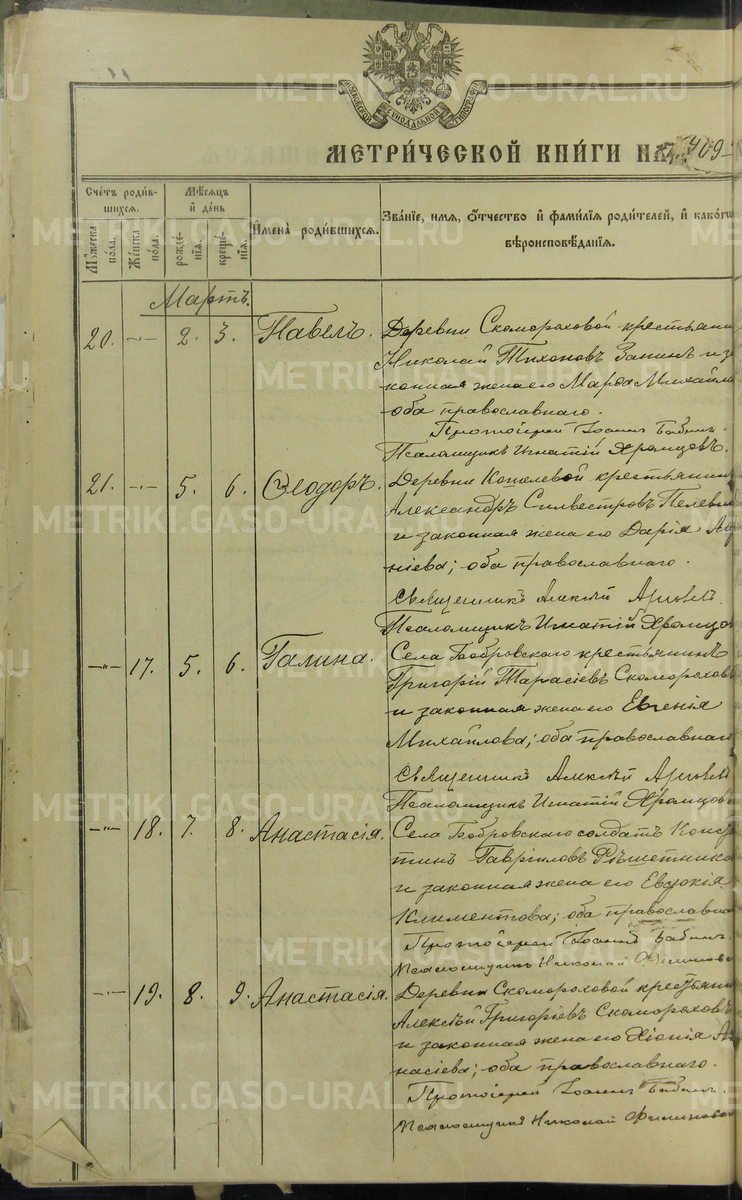 МОСКОВСКОЙ СѴНОДАЛЬНОЙ ТИПОГРАФІИ
МЕТРИ́ЧЕСКОЙ КНИ́ГИ НА 1909
Счетъ роди́в-
шихся.
Мꙋ́жеска
по́ла.
Же́нска
по́ла.
Мѣ́сяцъ
и҆ де́нь
рожде́-
нїя.
креще́-
нїя.
И҆мена̀ роди́вшихся.
Зва́нїе, и҆мѧ, ѻ҆́тчество и҆ фами́лїѧ роди́телей, и҆ како́гѡ
вѣроисповѣ́данїѧ.
Мартъ.
20. -„- 2. 3. Павелъ.
Деревни Скомороховой крестьянин
Николай Тихоновъ Занинъ и за
конная жена его Марѳа Михайло
оба православнаго.
Протоіерей Іоаннъ Бабинъ.
Псаломщикъ Игнатій Храмцовъ.
21. -„- 5. 6. Ѳеодоръ.
Деревни Кошелевой крестьянин
Александръ Силвестровъ Пелевин
и законная жена его Дарія
ніева; оба православнаго.
Священникъ Алексѣй
Псаломщикъ Игнатій Храмцов
-„- 17. 5. 6. Галина.
Села Бобровскаго крестьянинъ
Григорій Тарасіевъ Скомороховъ
и законная жена его Евгенія
Михайлова; оба православнаго
Священникъ Алексѣй
Псаломщикъ Игнатій Храмцовъ
-„- 18. 7. 8. Анастасія.
Села Бобровскаго солдатъ Конст
тинъ Гавріиловъ Рѣшетнико
и законная жена его Евдокія
Климентова; оба православна
Протоіерей Іоаннъ Бабинъ.
Псаломщикъ Николай Филиппово
-„- 19. 8. 9. Анастасія.
Деревни Скомороховой крестьяни
Алексѣй Григоріевъ Скомороховъ
и законная жена его Хіонія
насіева; оба православнаго.
Протоіерей Іоаннъ Бабинъ.
Псаломщикъ Николай Филиппово
METRIKI.GASO-URAL.RU